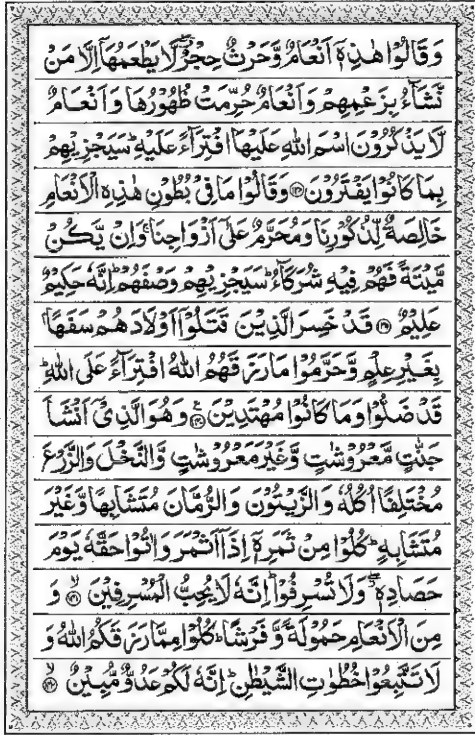 وَقَالُوْا هٰذِهٖۤ اَنْعَامٌ وَّحَرْثٌ حِجْرٌ ۖ لَّا يَطْعَمُهَاۤ اِلَّا مَنْ
نَّشَآءُ بِزَعْمِهِمْ وَاَنْعَامٌ حُرِّمَتْ ظُهُوْرُهَا وَاَنْعَامٌ
لَّا يَذْكُرُوْنَ اسْمَ اللّٰهِ عَلَيْهَا افْتِرَآءً عَلَيْهِ ؕ سَيَجْزِيْهِمْ
بِمَا كَانُوْا يَفْتَرُوْنَ ۝۱۳۸ وَقَالُوْا مَا فِيْ بُطُوْنِ هٰذِهِ الْاَنْعَامِ
خَالِصَةٌ لِّذُكُوْرِنَا وَمُحَرَّمٌ عَلٰۤى اَزْوَاجِنَا ۚ وَاِنْ يَّكُنْ
مَّيْتَةً فَهُمْ فِيْهِ شُرَكَآءُ ؕ سَيَجْزِيْهِمْ وَصْفَهُمْ ؕ اِنَّهٗ حَكِيْمٌ
عَلِيْمٌ ۝۱۳۹ قَدْ خَسِرَ الَّذِيْنَ قَتَلُوْۤا اَوْلَادَهُمْ سَفَهًۢا
بِغَيْرِ عِلْمٍ وَّحَرَّمُوْا مَا رَزَقَهُمُ اللّٰهُ افْتِرَآءً عَلَى اللّٰهِ ؕ
قَدْ ضَلُّوْا وَمَا كَانُوْا مُهْتَدِيْنَ ۝۱۴۰ وَهُوَ الَّذِيْۤ اَنْشَاَ
جَنّٰتٍ مَّعْرُوْشٰتٍ وَّغَيْرَ مَعْرُوْشٰتٍ وَّالنَّخْلَ وَالزَّرْعَ
مُخْتَلِفًا اُكُلُهٗ وَالزَّيْتُوْنَ وَالرُّمَّانَ مُتَشَابِهًا وَّغَيْرَ
مُتَشَابِهٍ ؕ كُلُوْا مِنْ ثَمَرِهٖۤ اِذَاۤ اَثْمَرَ وَاٰتُوْا حَقَّهٗ يَوْمَ
حَصَادِهٖ ۖ وَلَا تُسْرِفُوْا ؕ اِنَّهٗ لَا يُحِبُّ الْمُسْرِفِيْنَ ۙ۝۱۴۱ وَ
مِنَ الْاَنْعَامِ حَمُوْلَةً وَّفَرْشًا ؕ كُلُوْا مِمَّا رَزَقَكُمُ اللّٰهُ وَ
لَا تَتَّبِعُوْا خُطُوٰتِ الشَّيْطٰنِ ؕ اِنَّهٗ لَكُمْ عَدُوٌّ مُّبِيْنٌ ۙ۝۱۴۲